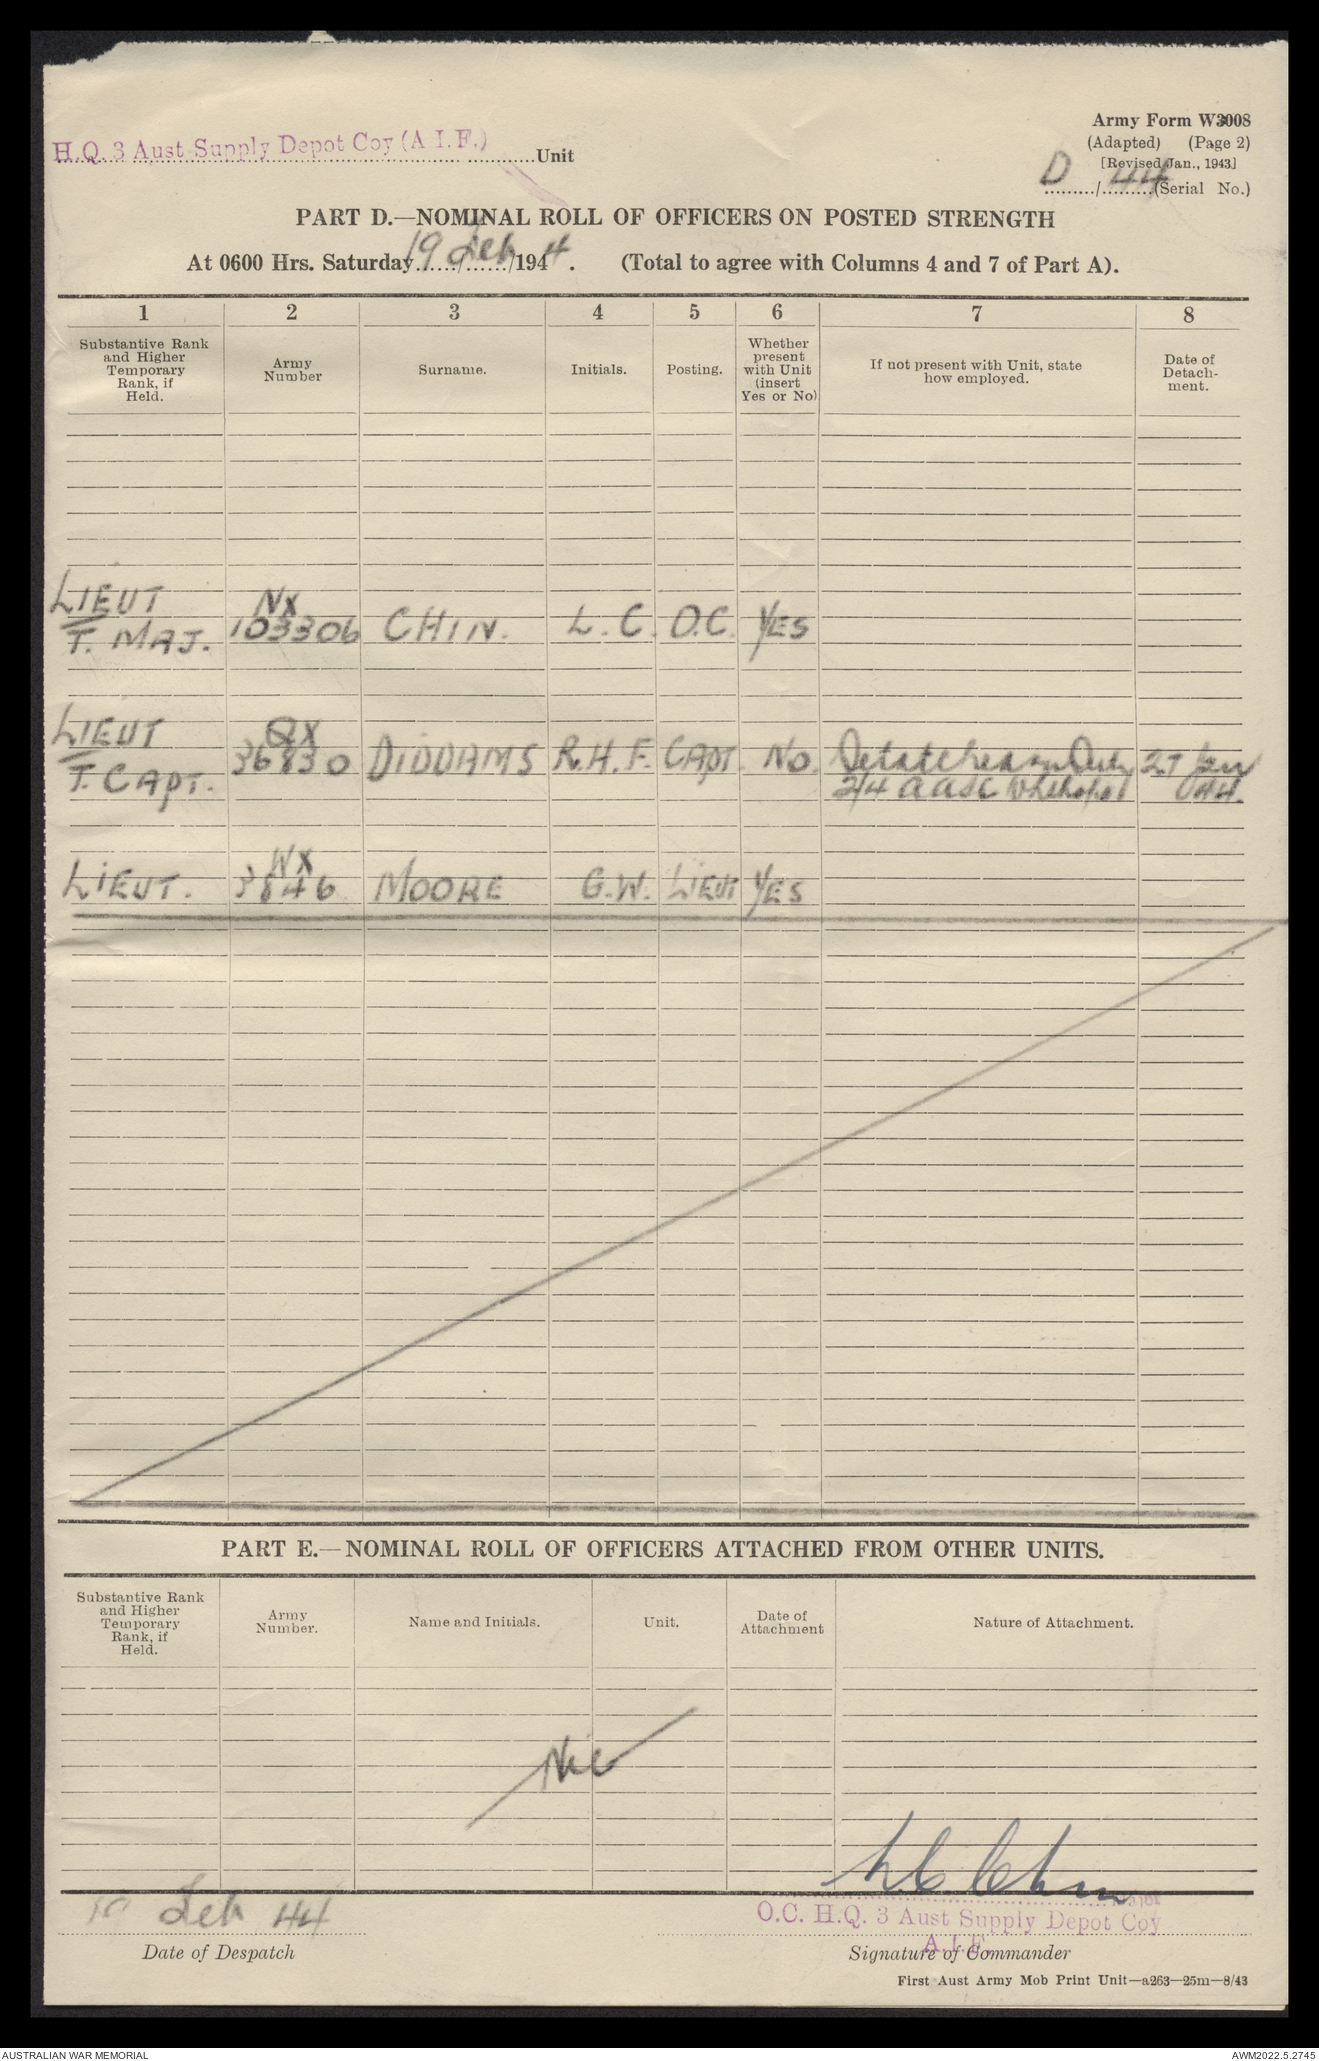 H.Q. 3 Aust Supply Depot Coy (A I.F.) Unit
Army Form W3008
(Adapted) (Page 2)
[Revised Jan., 1943]
D / 44 (Serial No.)
PART D.—NOMINAL ROLL OF OFFICERS ON POSTED STRENGTH
At 0600 Hrs. Saturday 19 Feb 1944. (Total to agree with Columns 4 and 7 of Part A).
1 2 3 4 5 6 7 8
Substantive Rank and Higher Temporary Rank, if Held.
Army Number
Surname.
Initials.
Posting.
Whether present with Unit (insert Yes or No)
If not present with Unit, state how employed.
Date of Detach-ment.
LIEUT NX
T. MAJ. 103306 CHIN. L. C. O.C. YES
LIEUT QX
T. CAPT. 36830 DIDDAMS R.H.F. CAPT. No. Detatched on Duty 27 Jan
2/4 AASC 44.
WX
LIEUT. 3846 MOORE G.W. LIEUT YES
PART E.—NOMINAL ROLL OF OFFICERS ATTACHED FROM OTHER UNITS.
Substantive Rank and Higher Temporary Rank, if Held.
Army Number.
Name and Initials.
Unit.
Date of Attachment
Nature of Attachment.
Nil
L C Chin Major
19 Feb 44 O.C. H.Q. 3 Aust Supply Depot Coy
A.I.F.
Date of Despatch Signature of Commander
First Aust Army Mob Print Unit—a263—25m—8/43
AUSTRALIAN WAR MEMORIAL AWM2022.5.2745